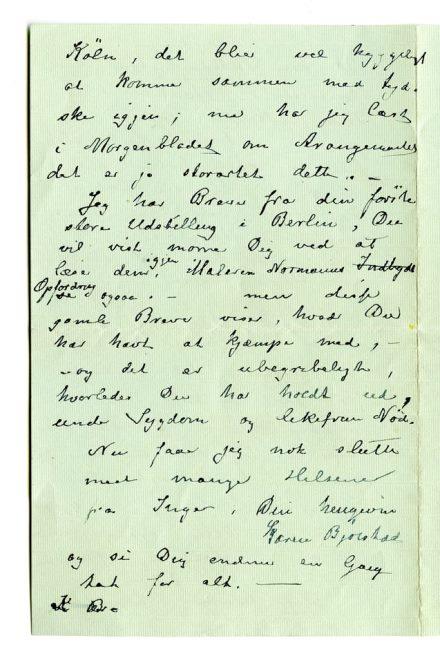 Köln, det blir vel hyggeligt
at komme sammen med tyd-
ske igjen; nu har jeg læst
i Morgenbladet om Arangementet
det er jo storartet dette. –
Jeg har Breve fra din første
store Udstilling i Berlin, Du
vil vist more Dig ved at
læse dem igjen, Maleren Normanns Indbyd
Opfordring
se ogsaa. – men disse
gamle Breve viser, hvad Du
har havt at kjæmpe med, –
– og det er ubegribeligt,
hvorledes Du har holdt ud,
under Sygdom og Nød.
Nu faar jeg nok slutte
med mange Hilsener
fra Inger, Din hengivne
Karen Bjølstad
og si Dig endnu en Gang
tak for alt. —